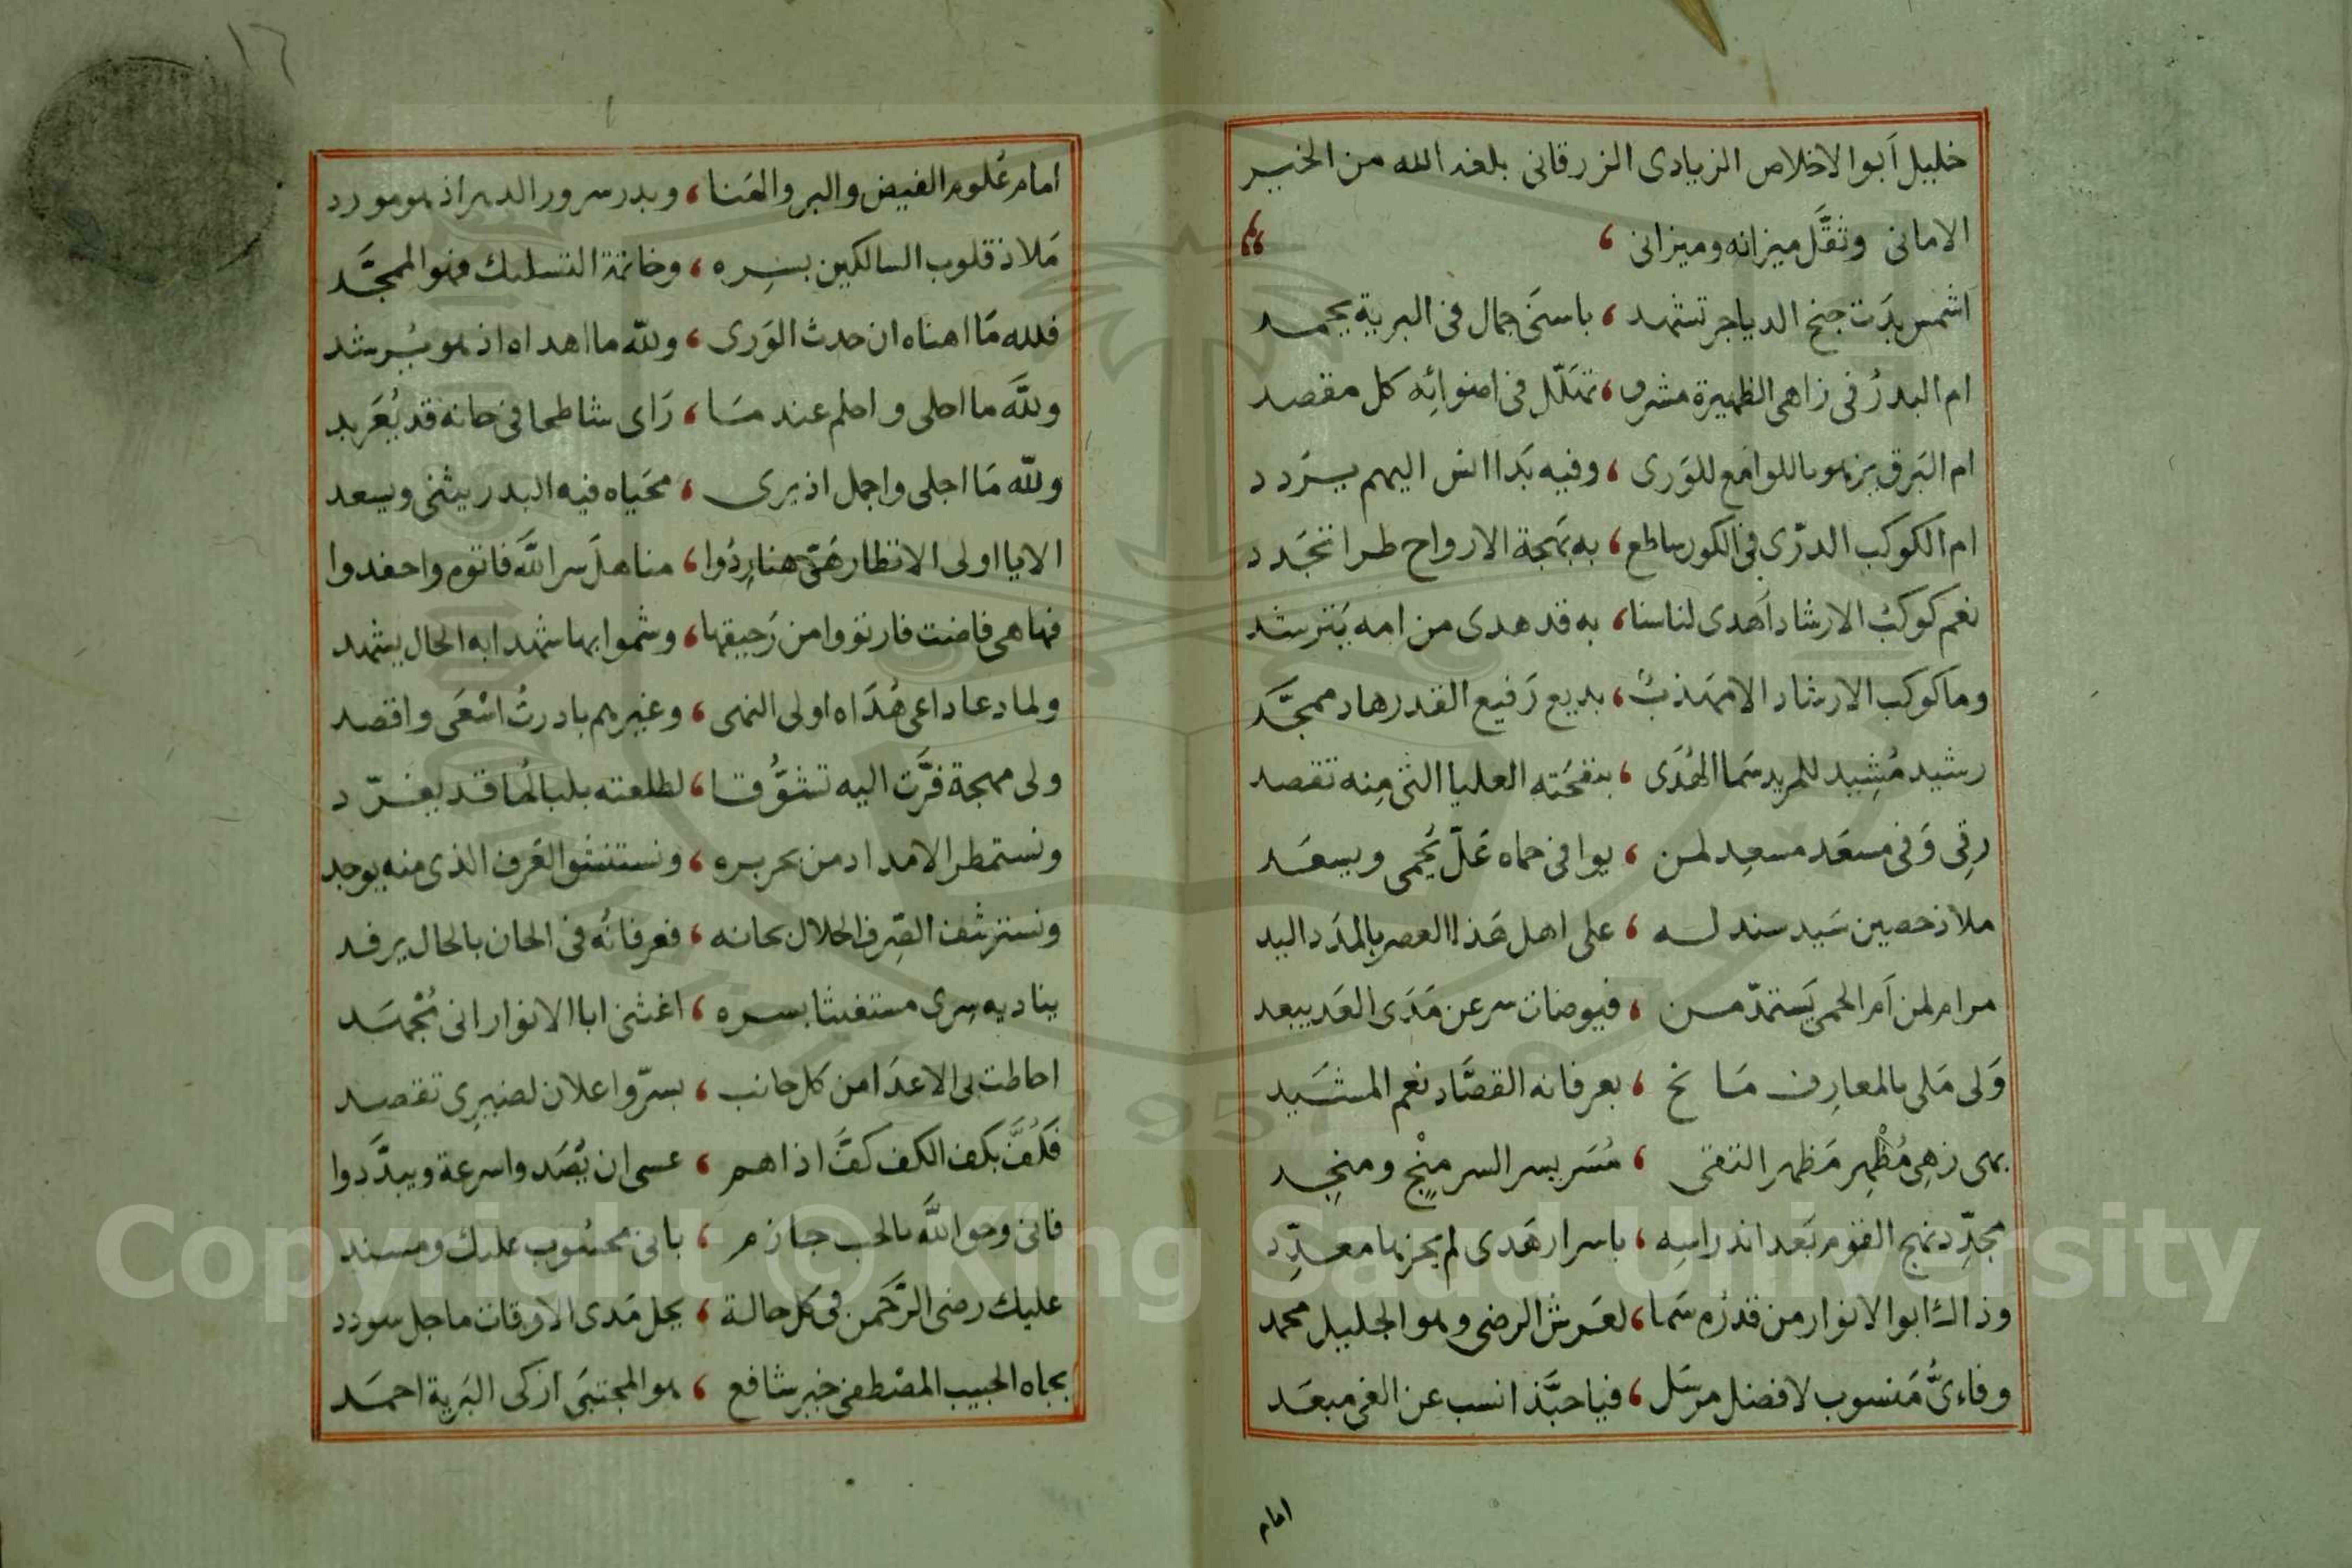 خليل اَبو الاخلاص الزيادى الزرقانى بلغه الله من الخير
الامانى وثقَّل ميزانه وميزانى ،
اشمس بدَت جنح الدياجر تشهد ، باسنَى جمال فى البرية يحمد
ام البدرُ فى زاهى الظهيرة مشرق ، تهلّل فى اضوائِه كل مقصد
ام البَرق يزهو باللوامع للوَرى ، وفيه بَدا انس اليهم يتردد
ام الكوكب الدرّى فى الكون ساطع ، به بَهجة الارواح طرا تجَدد
نعم كوكبُ الارشاد اَهدى لناسنا ، به قد هدى من امه يَترشد
وما كوكب الارشاد الا مهَذبٌ ، بديع رَفيع القدر هاد ممجَّد
رشيد مُشِيد للمريد سَما الهُدَى ، بنفحَته العليا التى مِنه تقصد
رقِى وَفى مسعَد مسعِد لمن ، يوافى حماه عَلّ يُحمى ويسعَد
ملاذ حصين سَيد سند له ، على اهل هَذا العصر بالمدَد اليد
مرام لمن اَم الحمى يَستمدّ من ، فيوضات سر عن مَدَى العَد يبعد
وَلى مَلى بالمعارِف مَانح ، بعرفانه القصَّاد نعم المشَيد
بهى زهِى مُظْهِر مَظهر التقى ، مُسَر بسر السر منْجٍ ومنجِد
مجدِّد نهج القوم بَعد اندراسِه ، باسرار هَدى لم يحزها معدِّد
وذاك ابو الانوار من قدرُه سَما ، لعَرش الرضى وهو الجليل محمد
وفاءىٌّ مَنسوب لافضل مرسَل ، فيا حبَّذا نسب عن الغى مبعَد
امام
١٦
امام عُلوم الفيض والبر والهَنا ، وبدر سرور الدهر اذ هو مورد
مَلاذ قلوب السالكين بسِره ، وخاتمة التسليك فهو الممجَّد
فلله مَا اهناه ان حدث الوَرى ، ولله ما اهداه اذ هو يُرشد
وللَّه ما احلى واحلم عندمَا ، رَاى شاطحا فى حانه قد يُعَربد
ولله مَا اجلى واجمل اذ يرى ، محَياه فيه البدر يثنى ويسعد
الا يا اولى الانظار هَيّ هنا رِدُوا ، مناهلَ سر اللَّه فاتوه واحفدوا
فها هى فاضت فارتووا من رَحيقها ، وشموا بها شهدا به الحال يشهد
ولما دعا داعى هُدَاه اولى النهى ، وغيرهم بادرتُ اسْعَى واقصد
ولى مهجة فَرَّت اليه تشوُّقا ، لطلعته بلبالُها قد يغرّد
ونستمطر الامداد من بحر بره ، ونستنشق العَرف الذى منه يوجد
ونسترشف الصِرف الحلال بحانه ، فعرفانُه فى الحان بالحال يرفد
يناديه سِرى مستغيثا بسره ، اغثنى ابا الانوار انى مُجْهَد
احاطت بى الاعدَا من كل جانب ، بسرّ واعلان لضيرِى تقصد
فكُفَّ بكف الكف كفَّ اذاهم ، عسى ان يُصَدوا سرعة ويبدَّدوا
فانى وحق اللَّه بالحب جازم ، بانى محسُوب عليك ومسند
عليك رضى الرَّحمَن فى كل حالة ، يحل مَدى الاوقات ما جل سودد
بجاه الحبيب المصْطفى خير شافع ، هو المجتبَى ازكى البَرية احمَد
Copyright © King Saud University